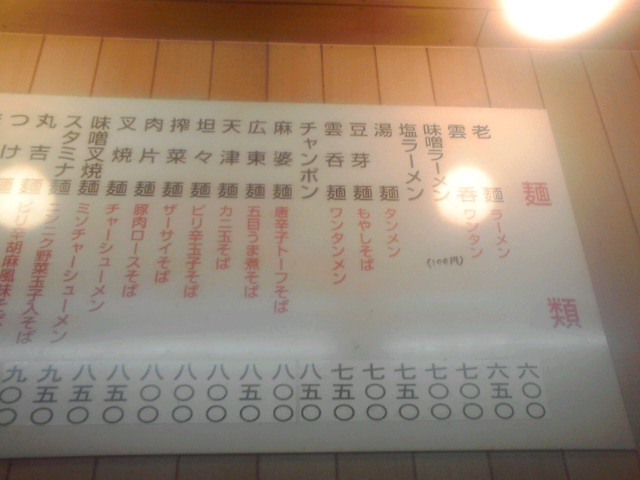 麺類
老麺 ラーメン
雲呑 ワンタン
味噌ラーメン
塩ラーメン
湯麺 タンメン
豆芽麺 もやしそば
雲呑麺 ワンタンメン
チャンポン
麻婆麺 唐辛子トーフそば
広東麺 五目うま煮そば
天津麺 カニ玉そば
坦々麺 ピリ辛玉子そば
搾菜麺 ザーサイそば
肉片麺 豚肉ロースそば
叉焼麺 チャーシューメン
味噌叉焼麺 ミソチャーシューメン
スタミナ麺 ニンニク野菜玉子入そば
丸吉麺 ピリ辛胡麻風味そば
つけ麺
六〇〇
六五〇
七〇〇
七〇〇
七五〇
七〇〇
七五〇
八五〇
八〇〇
八五〇
八〇〇
八〇〇
八〇〇
八五〇
八五〇
九五〇
九〇〇